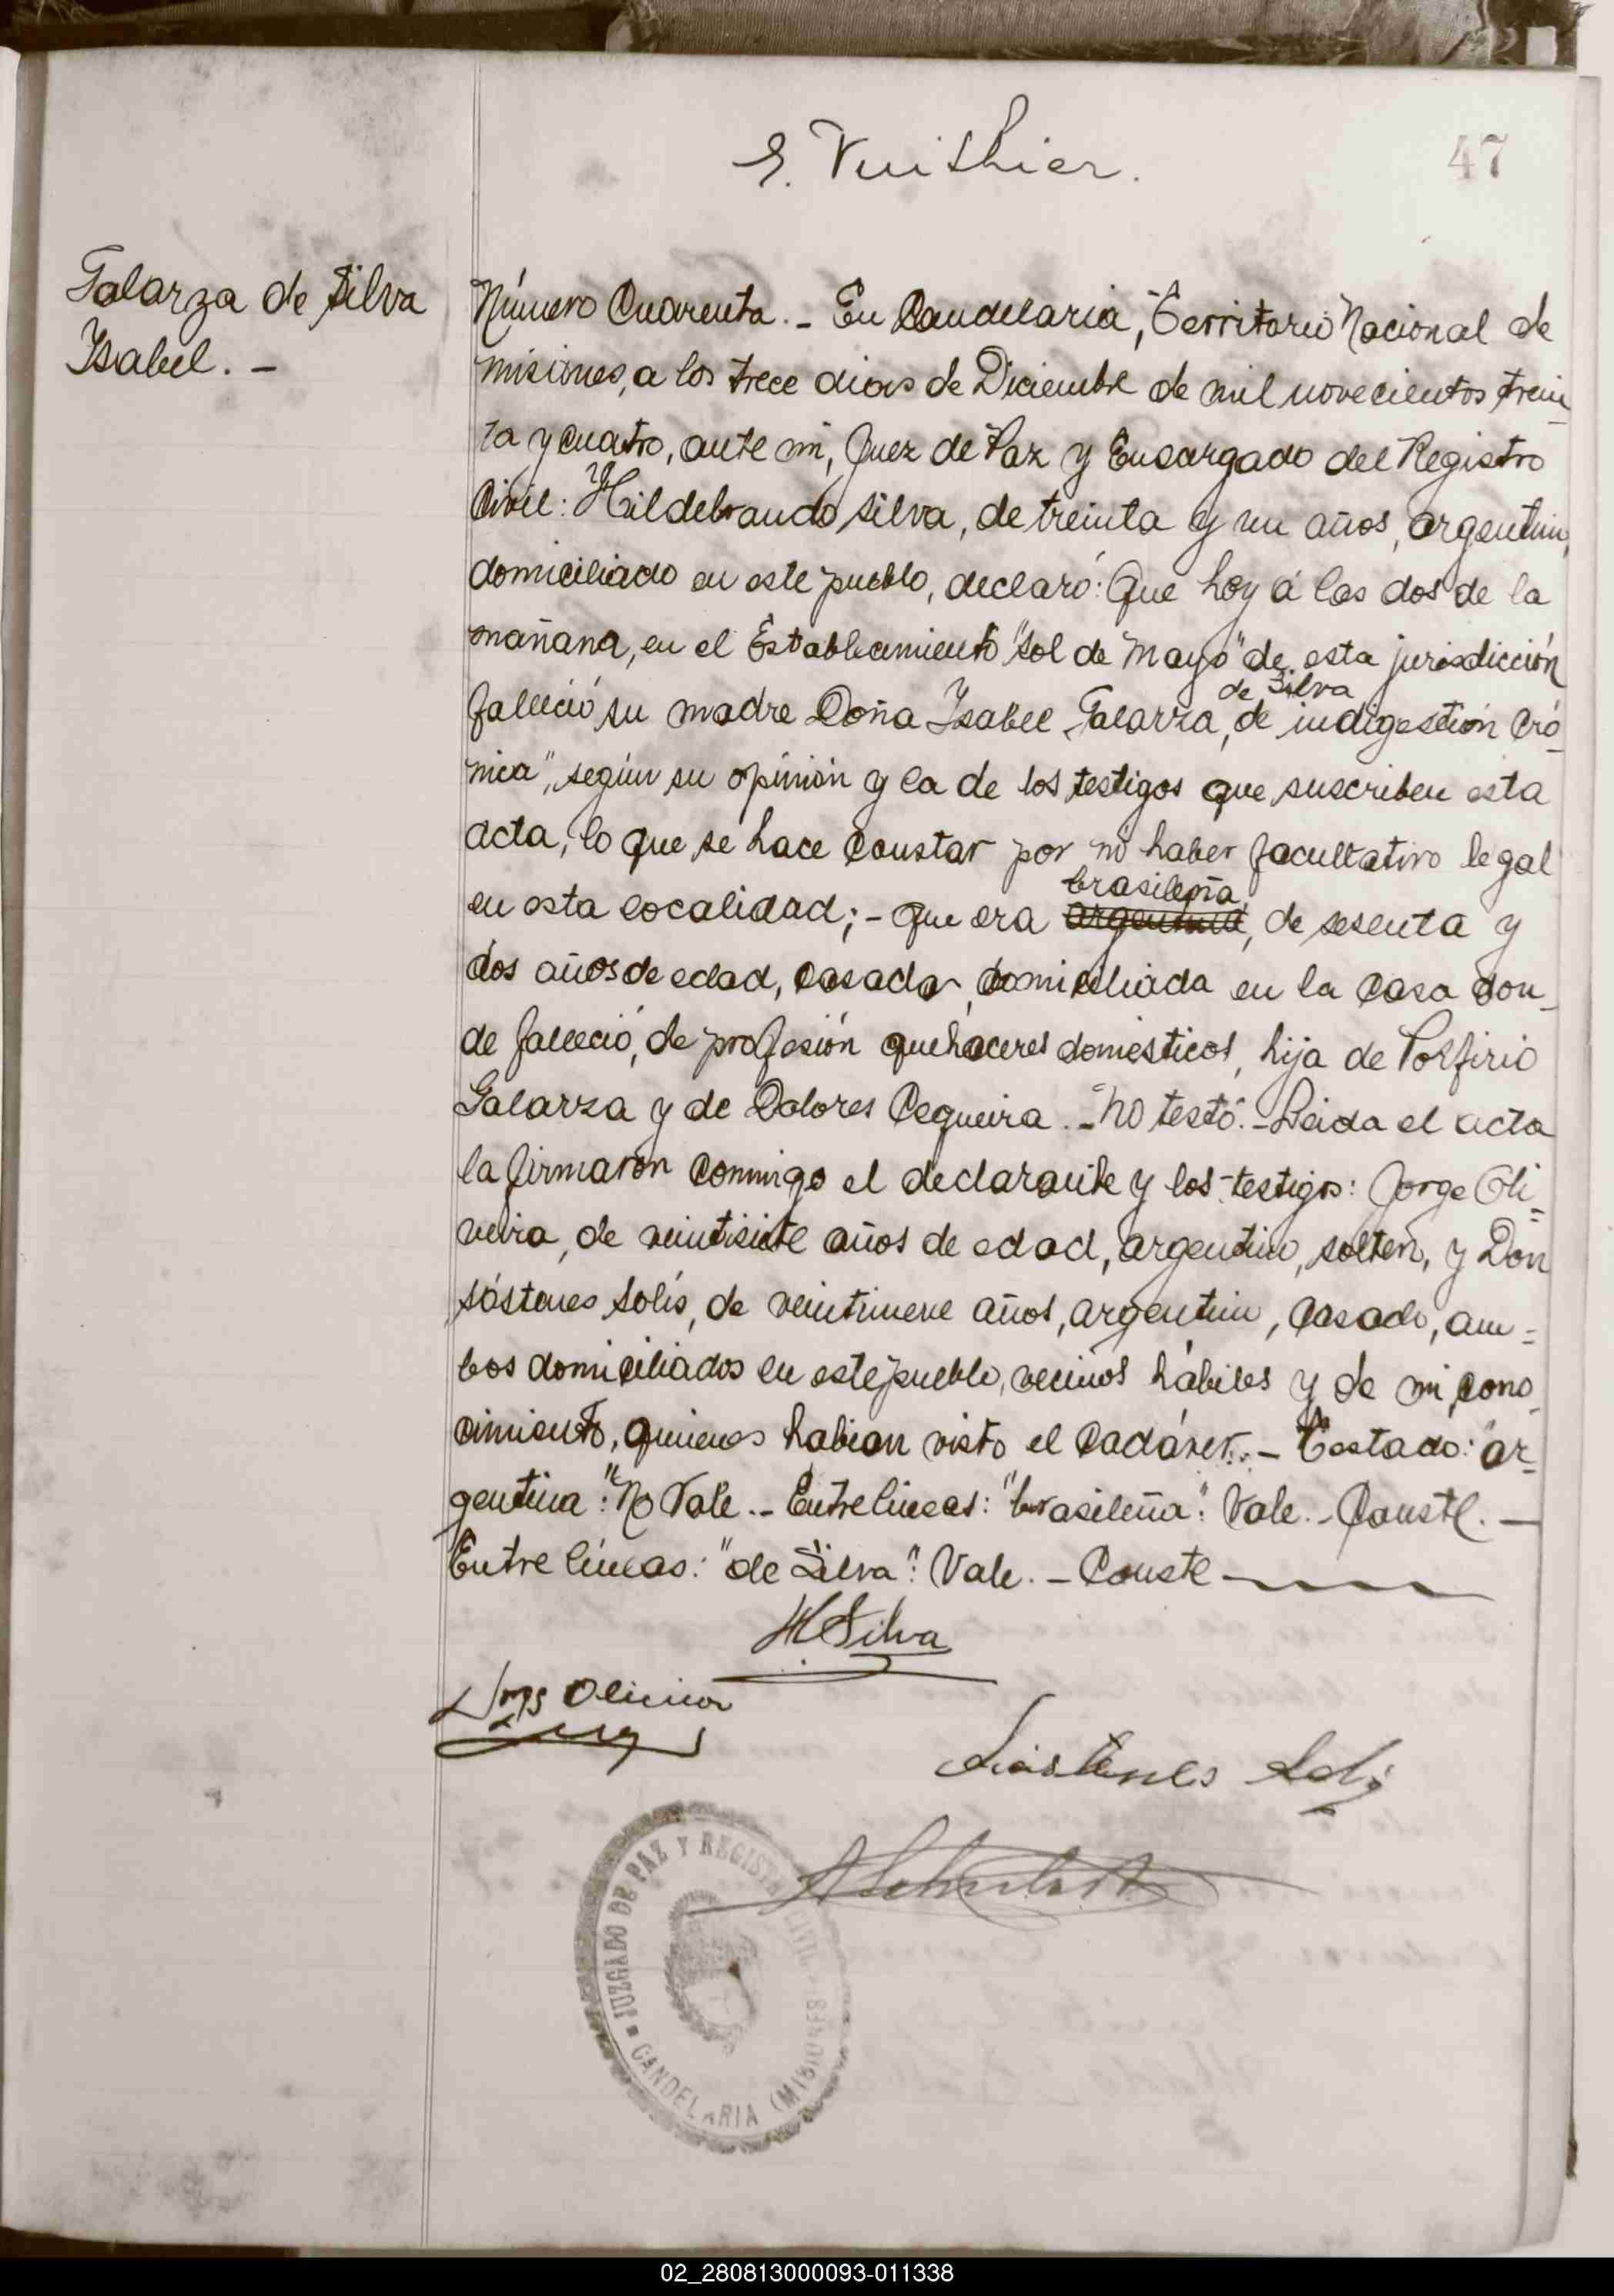 E. Vuithier.
47
Galarza de Silva
Isabel. -
Número Cuarenta. - En Candelaria, Territorio Nacional de
Misiones, a los trece dias de Diciembre de mil novecientos trein
ta y cuatro, ante mi, Juez de Paz y Encargado del Registro
Civil: Hildebrando Silva, de treinta y un años, argentino,
domiciliado en este pueblo, declaró: Que hoy á las dos de la
mañana, en el Establecimiento "Sol de Mayo" de esta jurisdicción
de Silva
falleció su madre Doña Isabel Galarza, de indigestión cró-
nica", según su opinión y la de los testigos que suscriben esta
acta, lo que se hace constar por no haber facultativo legal
brasileña,
en esta localidad; - que era argentina, de sesenta y
dos años de edad, casada, domiciliada en la casa don-
de falleció, de profesión quehaceres domésticos, hija de Porfirio
Galarza y de Dolores Cequeira. - "No testó". - Leida el acta
la firmaron conmigo el declarante y los testigos: Jorge Oli=
veira, de veintisiete años de edad, argentino, soltero, y Don
Sóstenes Solís, de veintinueve años, argentino, casado, am=
bos domiciliados en este pueblo, vecinos hábiles y de mi cono
cimiento, quienes habian visto el cadáver. - Testado: "ar-
gentina": No Vale. - Entre lineas: "brasileña": Vale. - Conste. -
Entre líneas: "de Silva": Vale. - Conste
H Silva
Jorge Oliveira
Sóstenes Solís
JUZGADO DE PAZ Y REGISTRO CIVIL
CANDELARIA (MISIONES)
02_280813000093-011338